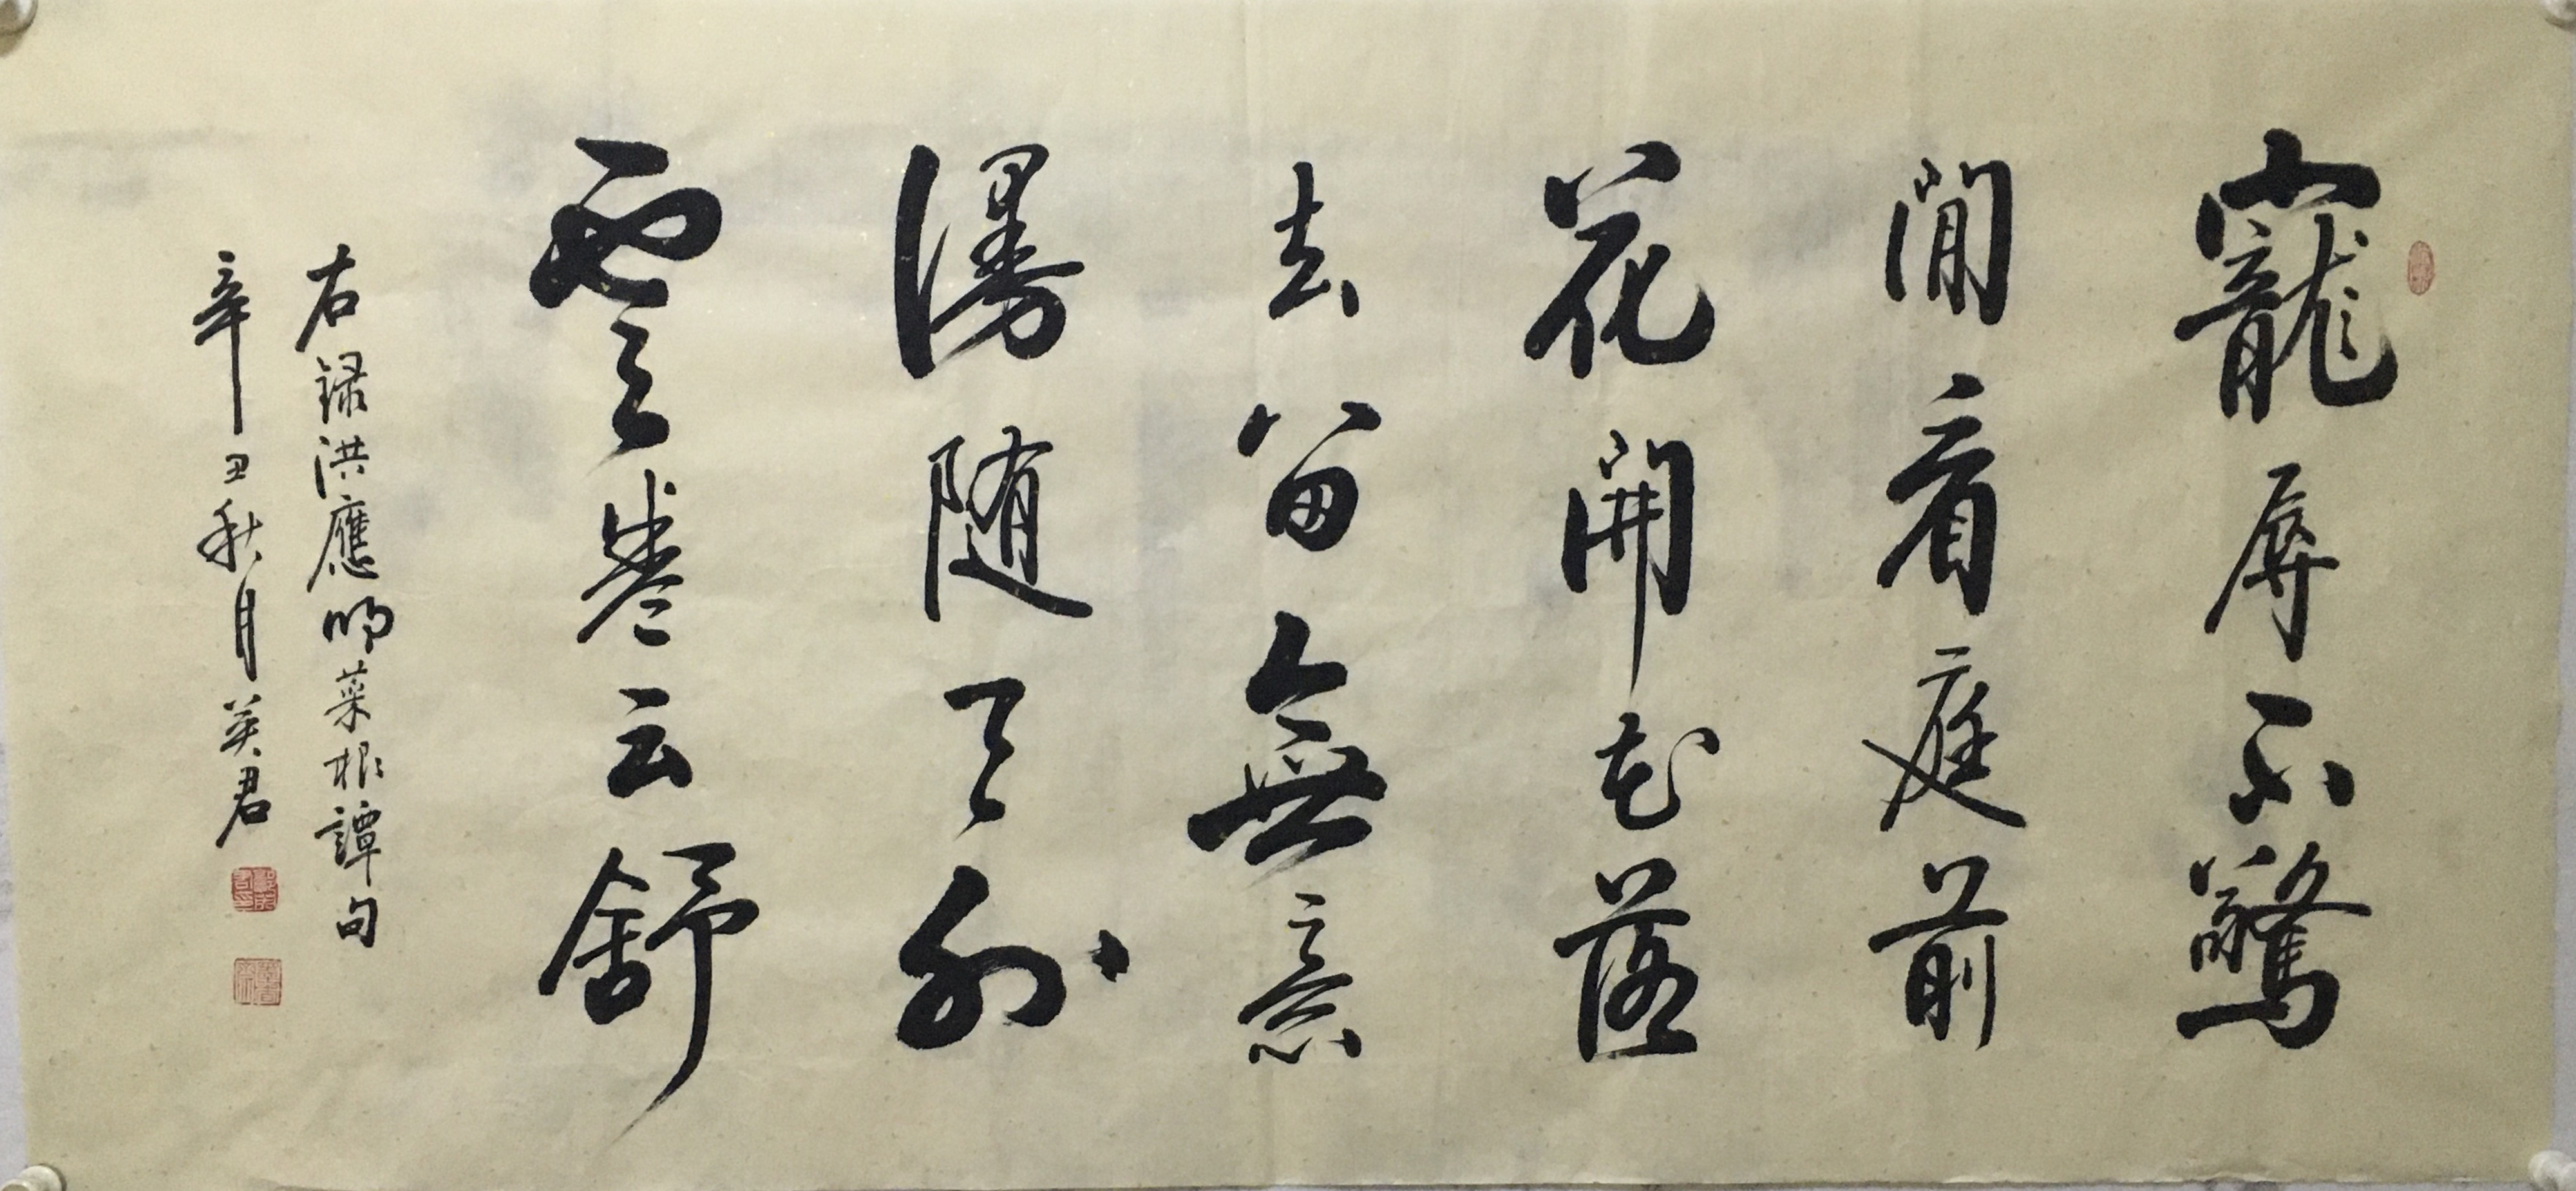 寵辱不驚
閒看庭前
花開花落
去留無意
漫随天外
雲卷云舒
右録洪應明菜根譚句
辛丑秋月英君